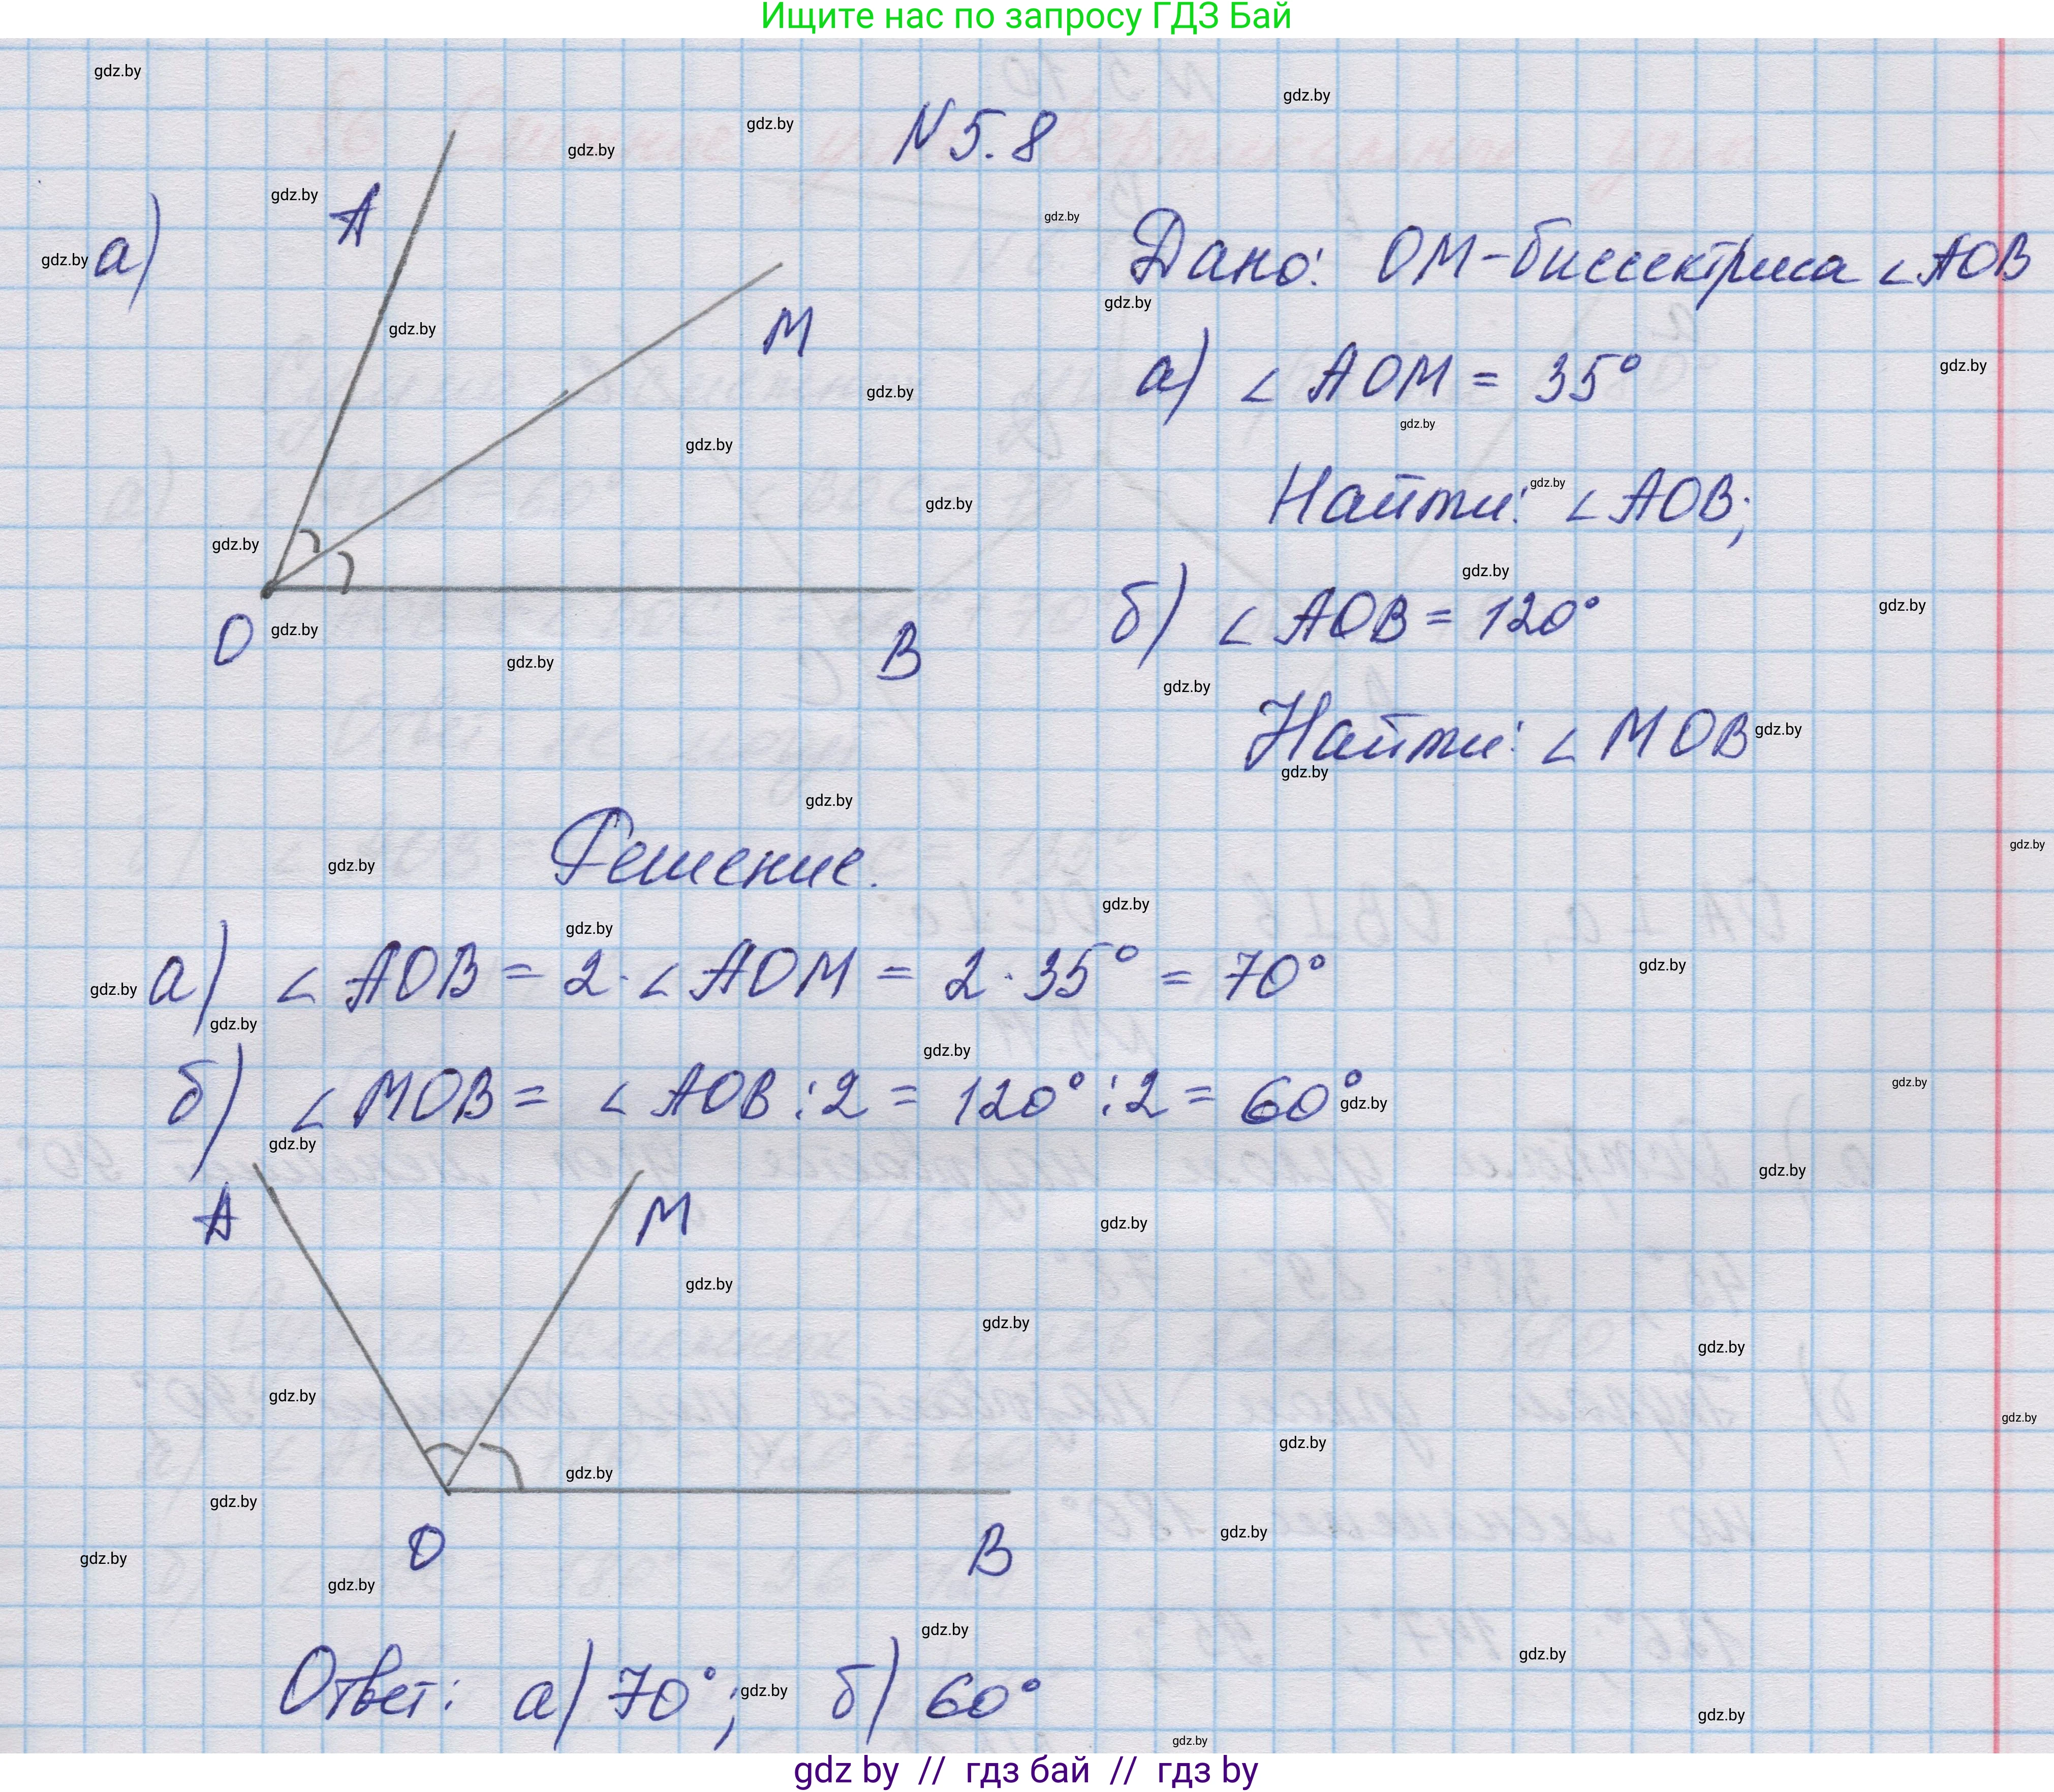 Ищите нас по запросу ГДЗ Бай
N 5.8
а)
A
M
O
B
Дано: OM-биссектриса ∠AOB
а) ∠AOM = 35°
Найти: ∠AOB;
б) ∠AOB = 120°
Найти: ∠MOB
Решение.
а) ∠AOB = 2·∠AOM = 2·35° = 70°
б) ∠MOB = ∠AOB:2 = 120°:2 = 60°
A
M
O
B
Ответ: а) 70°; б) 60°
gdz by // гдз бай // гдз by